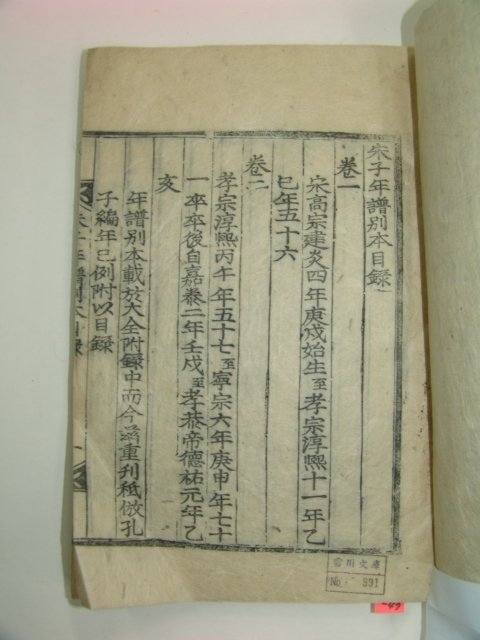 朱子年譜別本目錄
卷一
宋高宗建炎四年庚戌始生至孝宗淳熙十一年乙
巳年五十六
卷二
孝宗淳熙丙午年五十七至寧宗六年庚申年七十
一卒卒後自嘉泰二年壬戌至孝恭帝德祐元年乙
亥
年譜別本載於大全附錄中而今㴠重刊秪倣孔
子編年已例附以目錄
朱子年譜別本目錄
一
雷川文庫
No. 991
-49